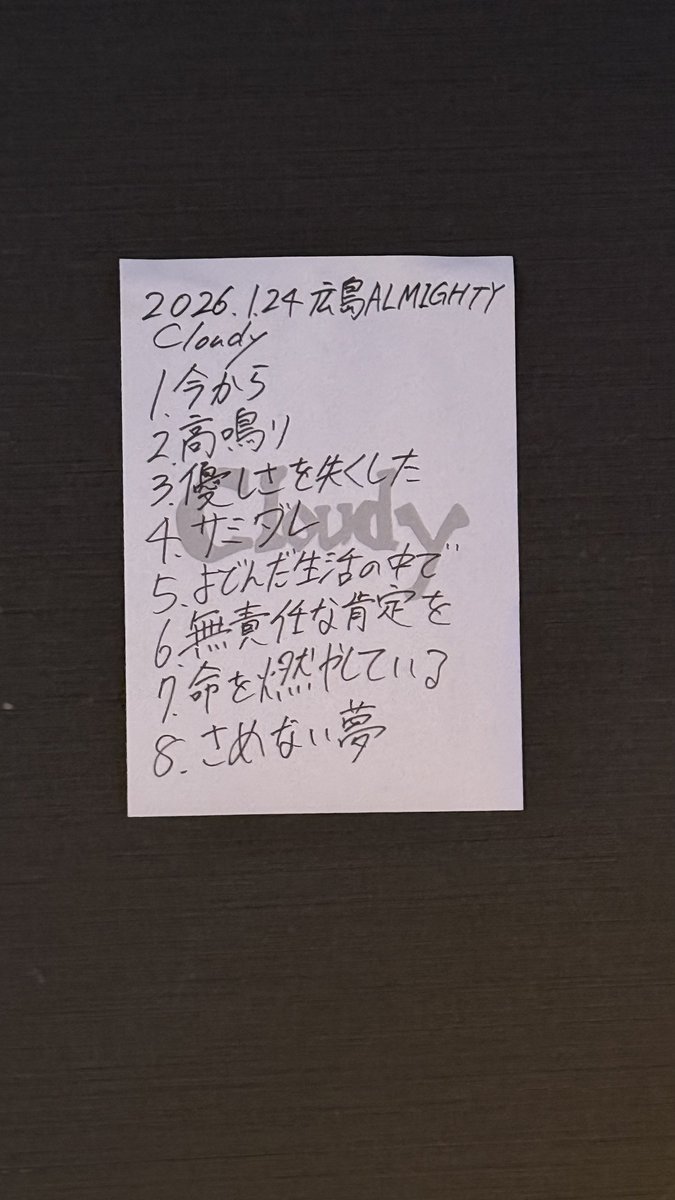 2026.1.24 広島ALMIGHTY
Cloudy
1.今から
2.高鳴り
3.優しさを失くした
4.サミダレ
Cloudy
5.よどんだ生活の中で
6.無責任な肯定を
7.命を燃やしている
8.さめない夢